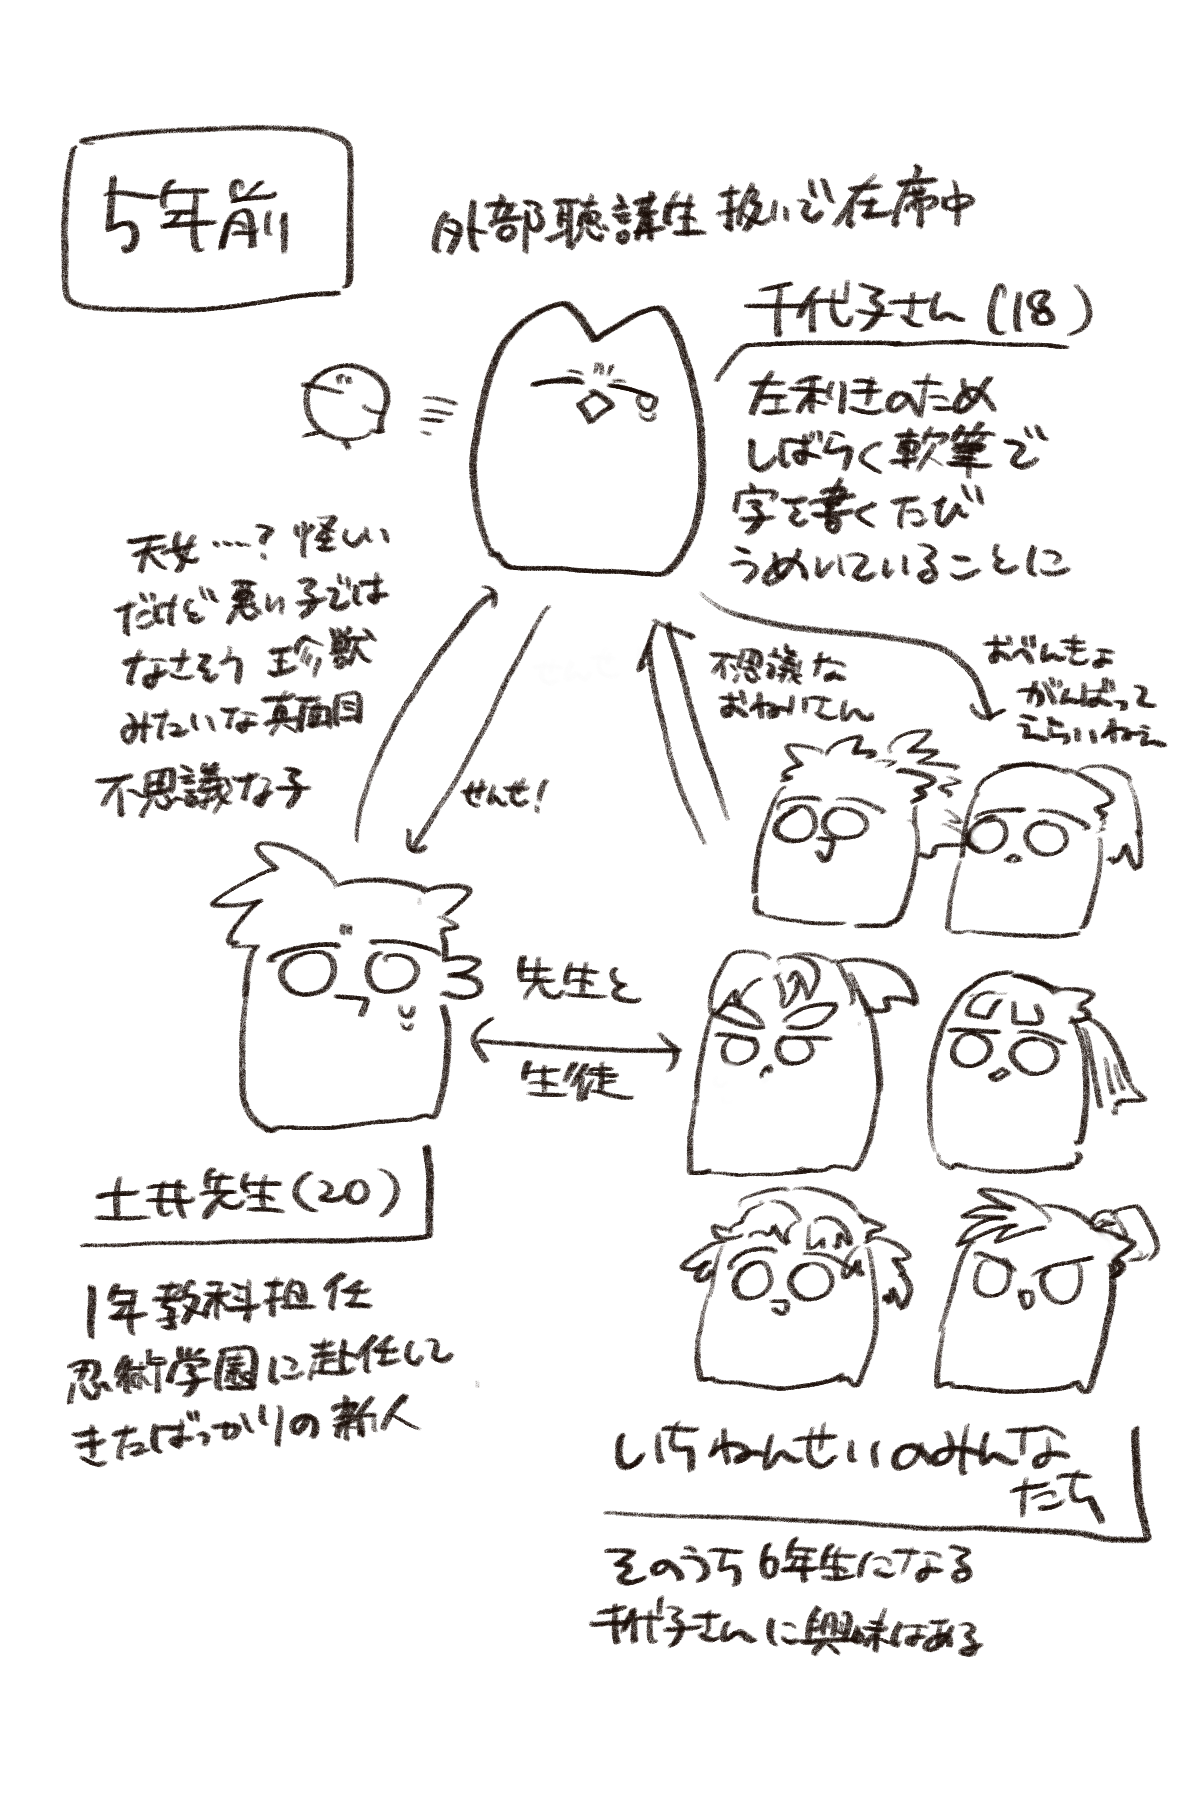 5年前
外部聴講生扱いで在席中
千代子さん(18)
左利きのため
しばらく軟筆で
字を書くたび
うめいていることに
天女…？怪しい
だけど悪い子では
なさそう 珍獣
みたいな真面目
不思議な子
せんせ！
不思議な
おねいさん
おべんきょ
がんばって
えらいねぇ
先生と
生徒
土井先生(20)
1年教科担任
忍術学園に赴任して
きたばっかりの新人
いちねんせいのみんな
たち
そのうち6年生になる
千代子さんに興味はある